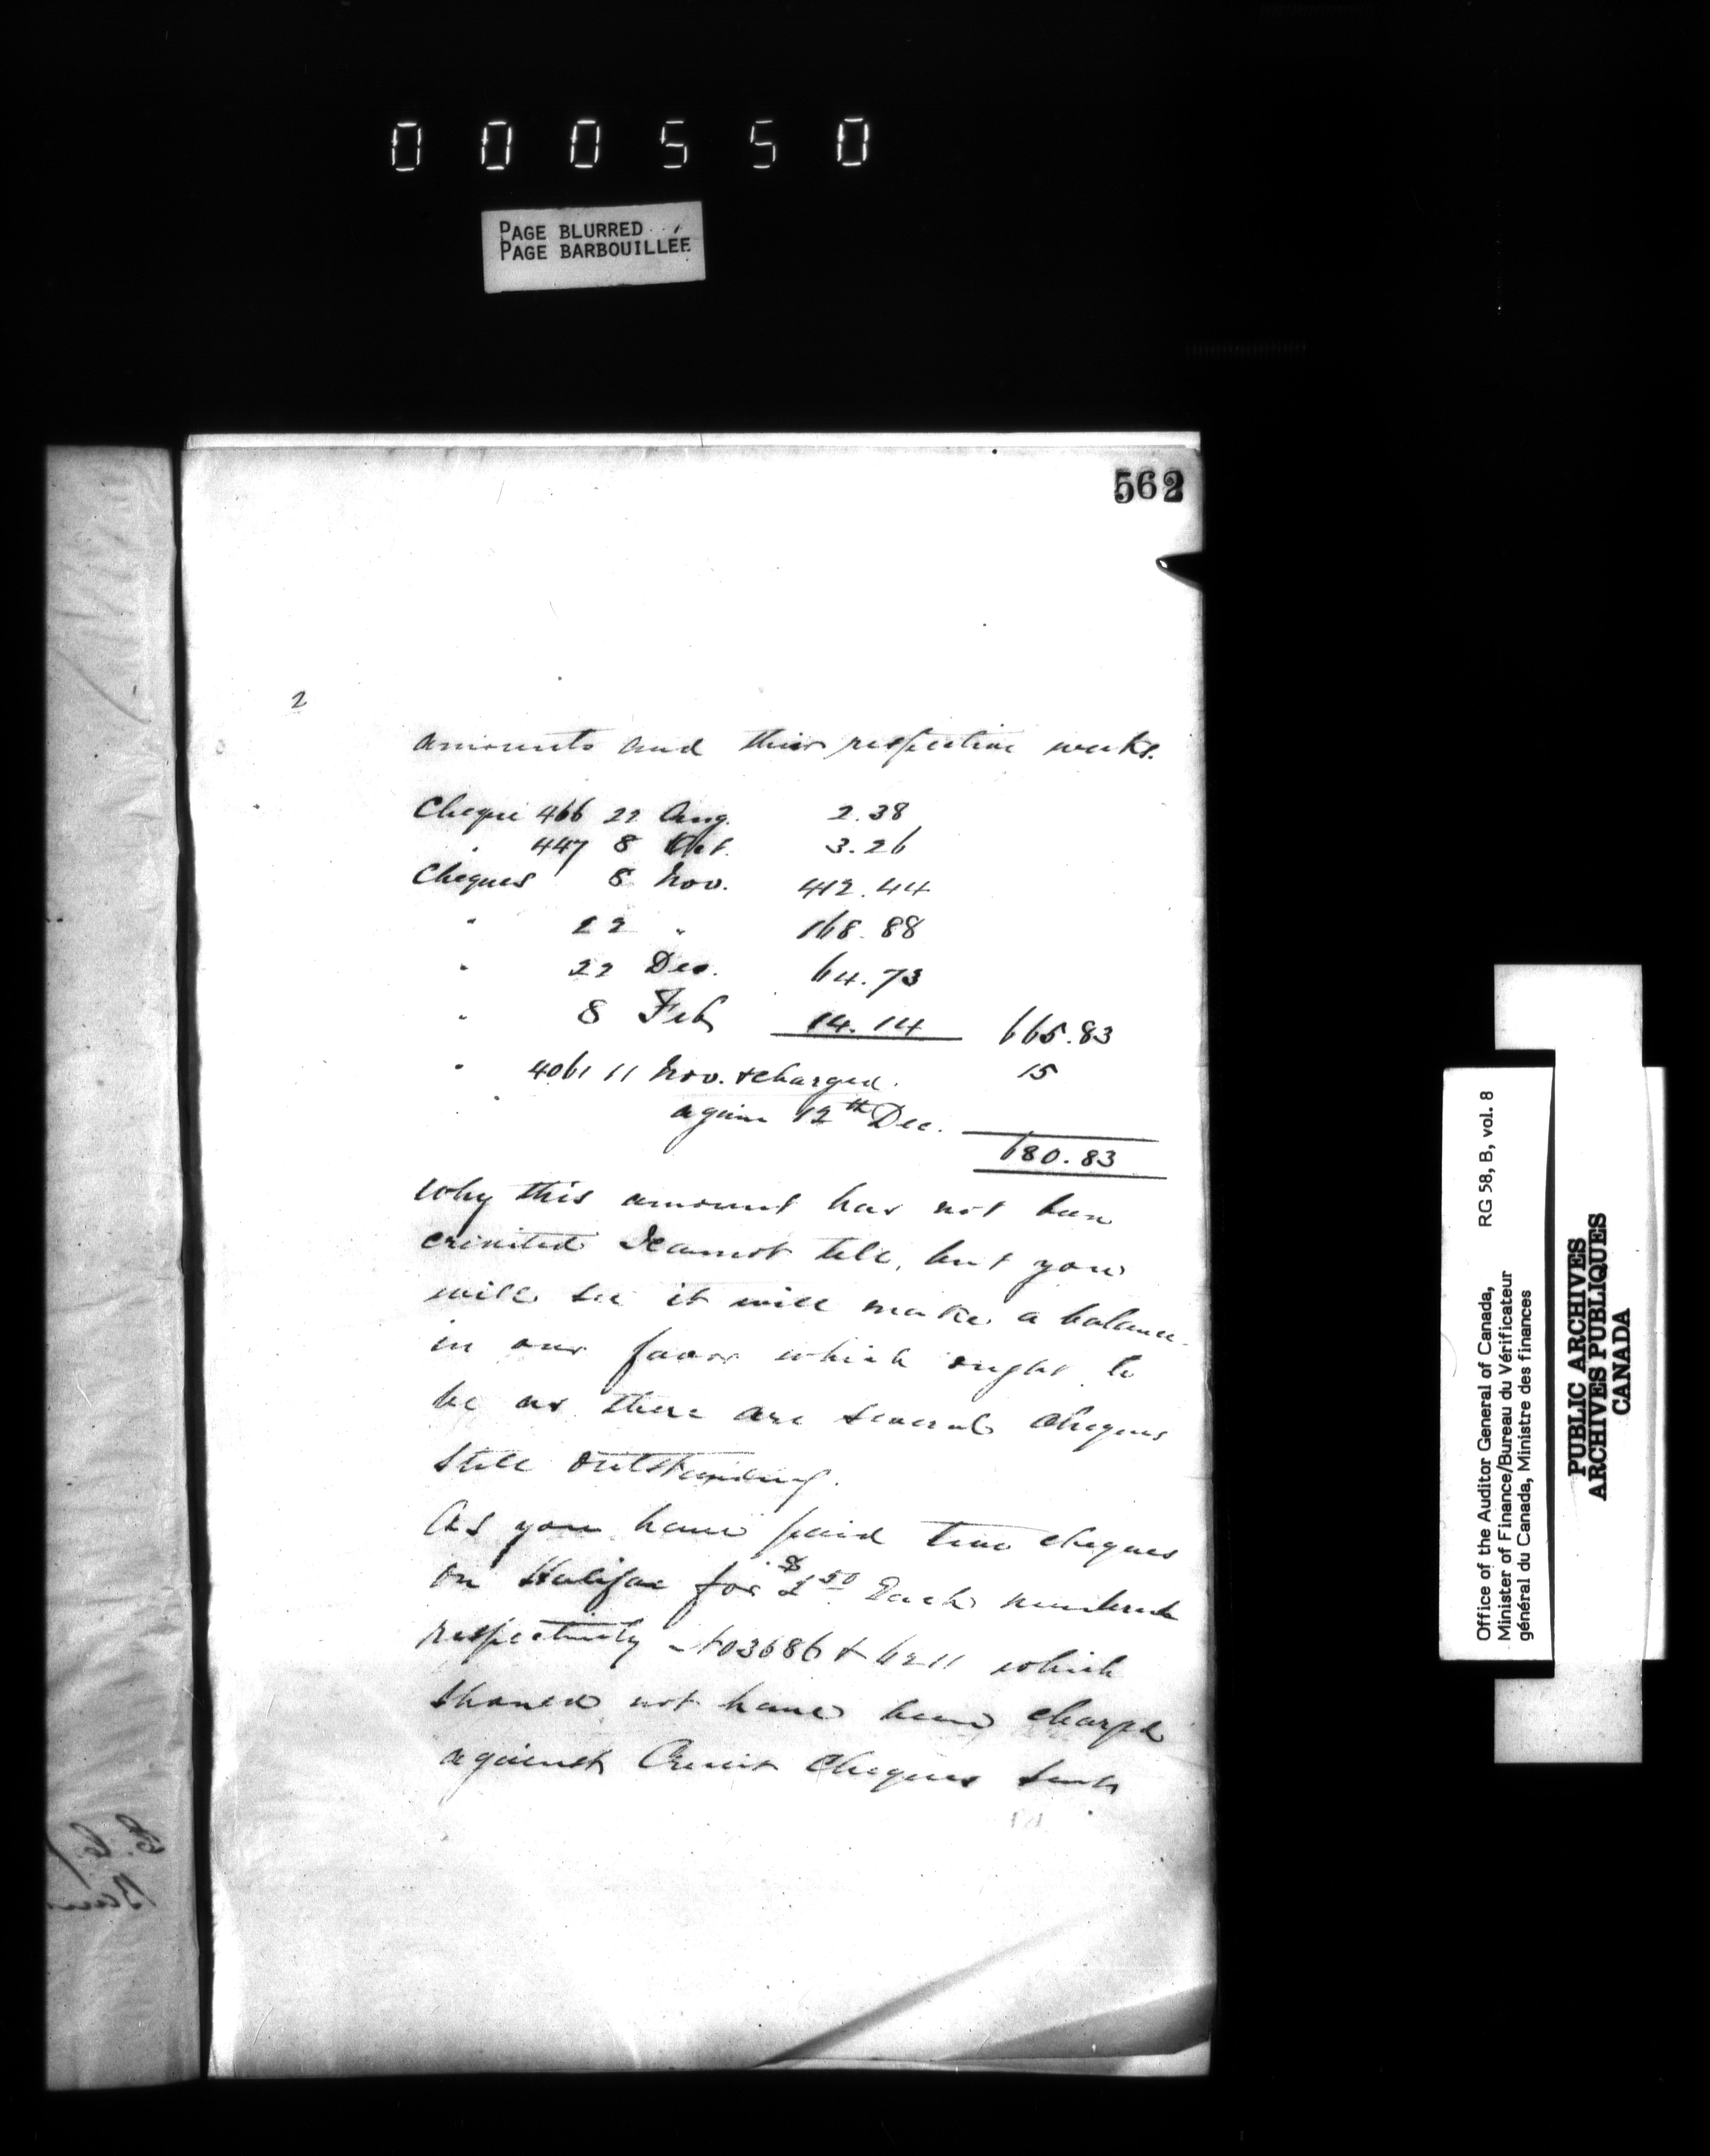 000550
PAGE BLURRED
PAGE BARBOUILLÉE
562
2
amounts and their respective weeks.
Cheque 466 22 Aug. 2.38
" 447 8 Oct. 3.26
Cheques 8 Nov. 412.44
" 22 " 168.88
" 22 Dec. 64.73
" 8 Feb 14.14 665.83
" 4061 11 Nov. & charged 15
again 12th Dec.
680.83
Why this amount has not been
credited I cannot tell, but you
will see it will make a balance
in our favor which ought to
be as there are several cheques
still outstanding.
As you have paid two cheques
on Halifax for $ 50 Each numbered
respectively No 3686 & 6211 which
should not have been charged
against Credit Cheques
Office of the Auditor General of Canada,
Minister of Finance/Bureau du Vérificateur
général du Canada, Ministre des finances
RG 58, B, vol. 8
PUBLIC ARCHIVES
ARCHIVES PUBLIQUES
CANADA